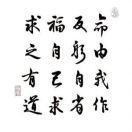 命由我作
反躬自省
福自己求
求之有道